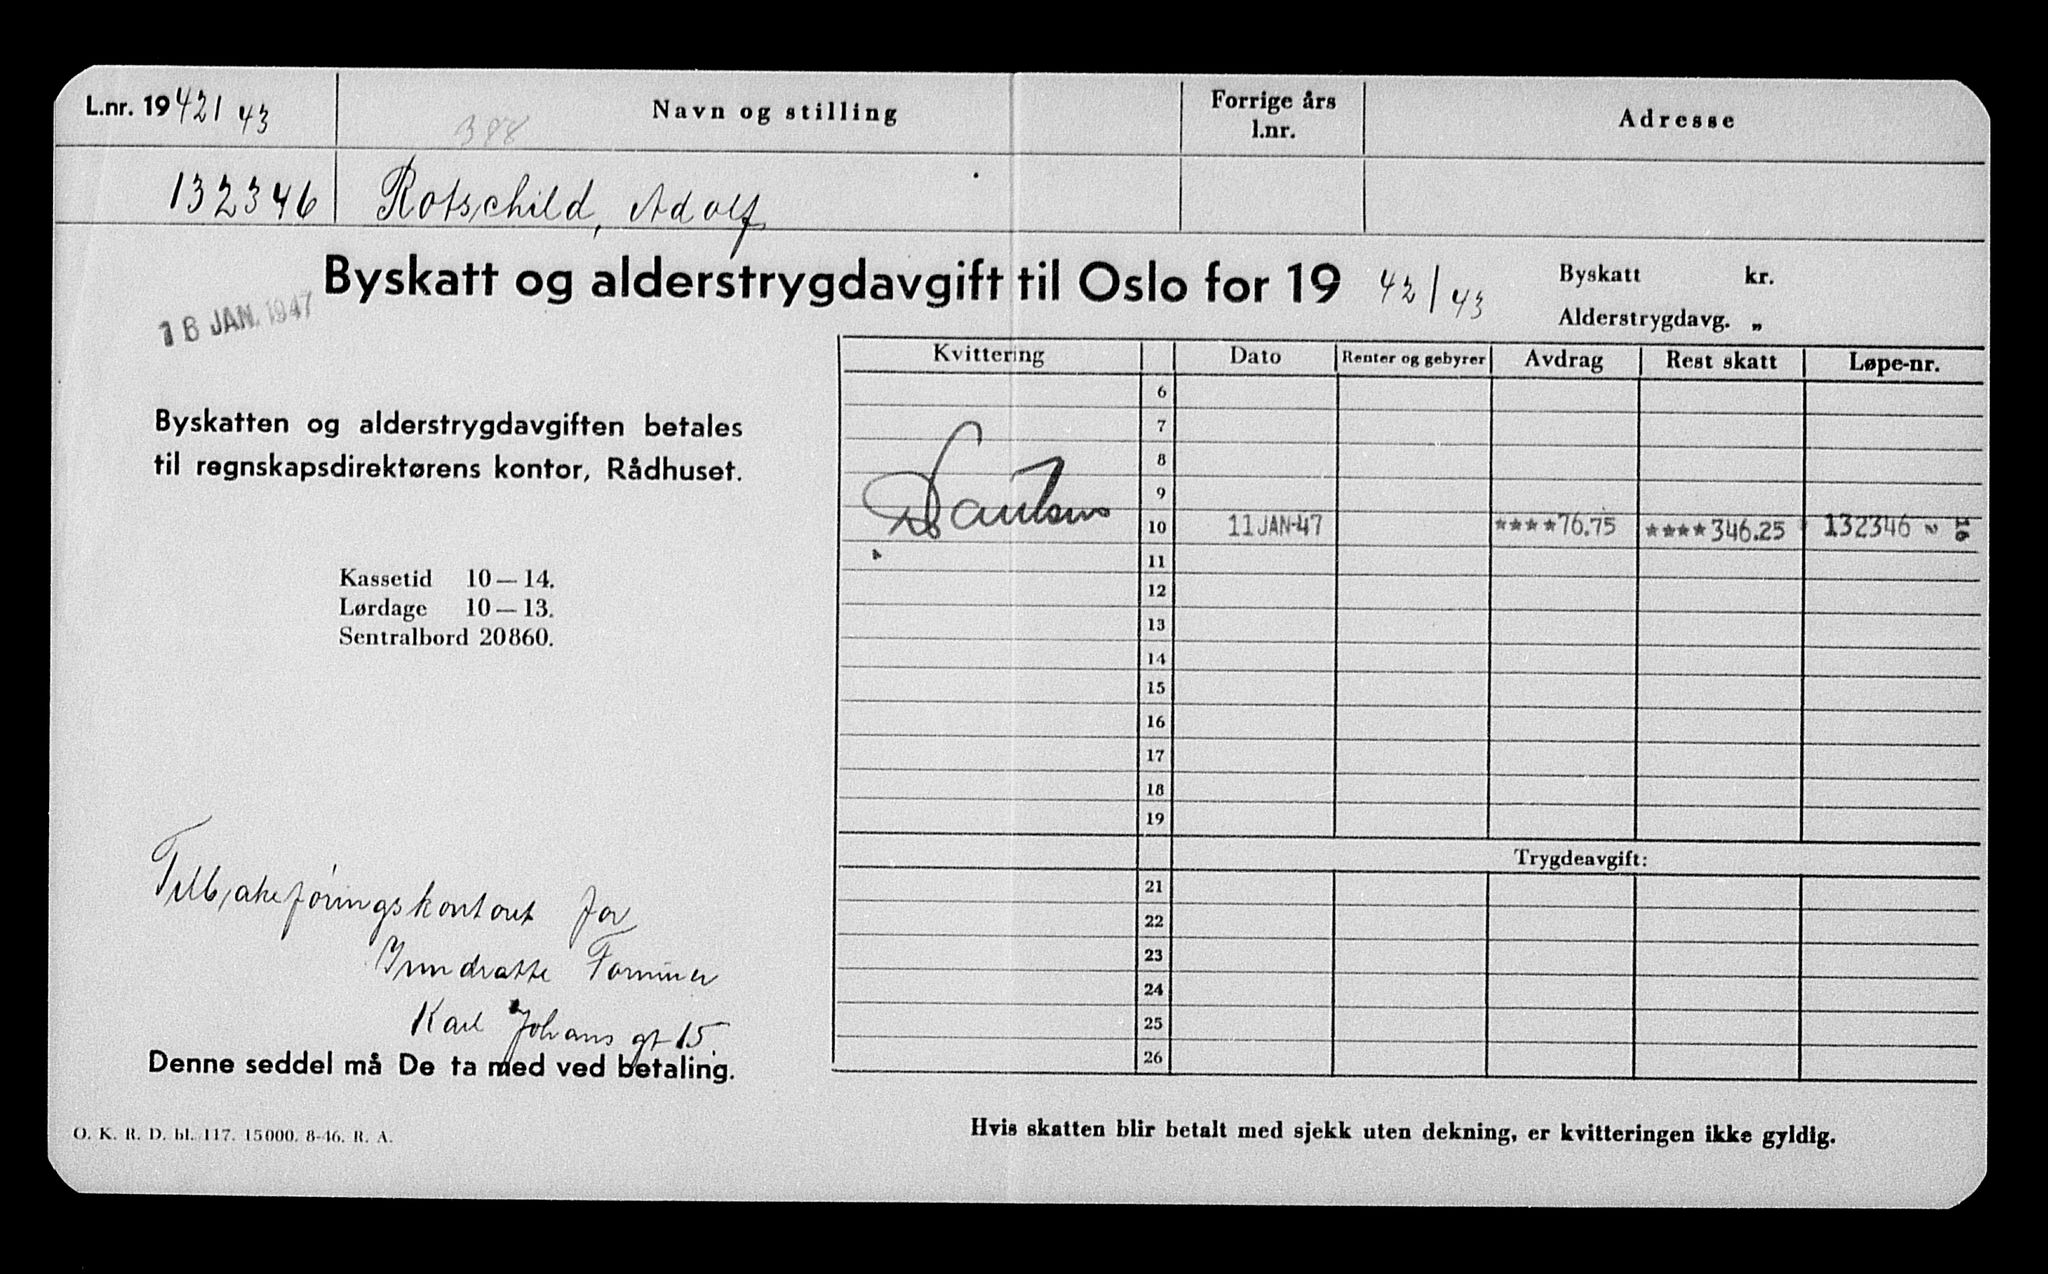 L.nr. 19 42/43
Navn og stilling
Forrige års
l.nr.
Adresse
388
132346
Rotschild, Adolf
Byskatt og alderstrygdavgift til Oslo for 19 42/43
Byskatt kr.
Alderstrygdavg. „
16 JAN. 1947
Byskatten og alderstrygdavgiften betales
til regnskapsdirektørens kontor, Rådhuset.
Kassetid 10—14.
Lørdage 10—13.
Sentralbord 20860.
Kvittering Dato Renter og gebyrer Avdrag Rest skatt Løpe-nr.
6
7
8
9
10 11 JAN-47 ****76.75 ****346.25 132346
11
12
13
14
15
16
17
18
19
Trygdeavgift:
21
22
23
24
25
26
Tilbakeføringskontoret for
Inndratte Formuer
Karl Johans gt 15.
Denne seddel må De ta med ved betaling.
O. K. R. D. bl. 117. 15000. 8-46. R. A.
Hvis skatten blir betalt med sjekk uten dekning, er kvitteringen ikke gyldig.